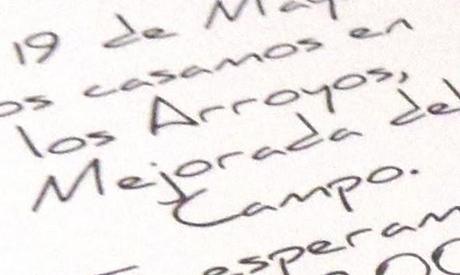 19 de May
os casamos en
los Arroyos,
Mejorada del
Campo.
esperam